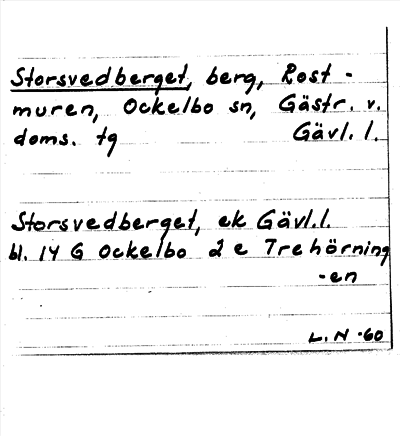 Storsvedberget, berg, Rost-
muren, Ockelbo sn, Gästr. v.
doms. tg Gävl. l.
Storsvedberget, ek Gävl.l.
bl. 14 G Ockelbo 2 e Trehörning
-en
L. N -60